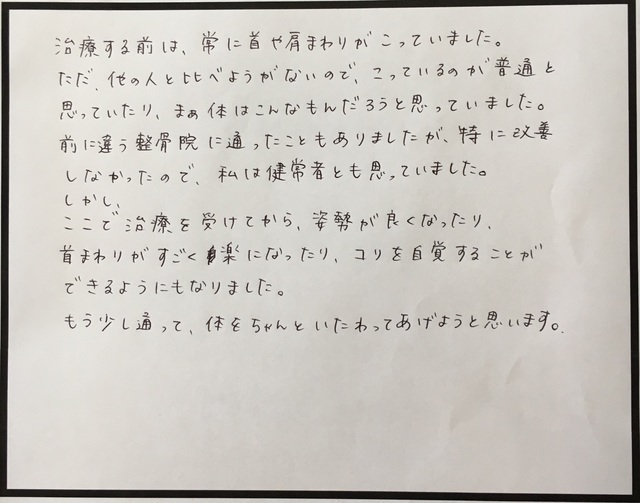 治療する前は、常に首や肩まわりがこっていました。
ただ、他の人と比べようがないので、こっているのが普通と
思っていたり、まぁ体はこんなもんだろうと思っていました。
前に違う整骨院に通ったこともありましたが、特に改善
しなかったので、私は健常者とも思っていました。
しかし、
ここで治療を受けてから、姿勢が良くなったり、
首まわりがすごく楽になったり、コリを自覚することが
できるようにもなりました。
もう少し通って、体をちゃんといたわってあげようと思います。